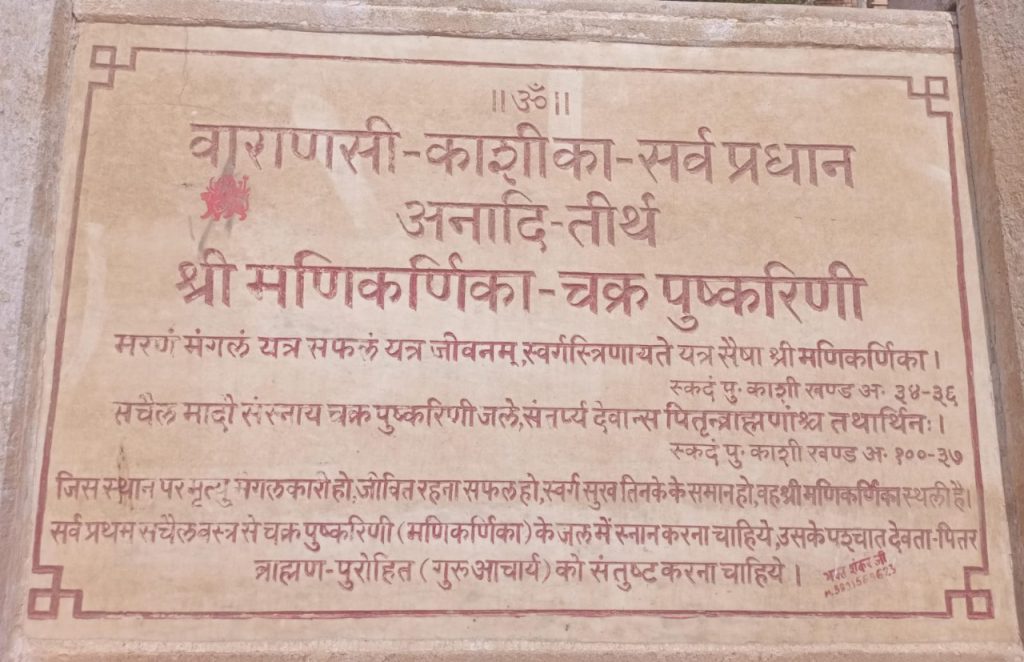 ॥ॐ॥
वाराणसी-काशीका-सर्व प्रधान
अनादि-तीर्थ
श्री मणिकर्णिका-चक्र पुष्करिणी
मरणं मंगलं यत्र सफलं यत्र जीवनम्, स्वर्गस्त्रिणायते यत्र सैषा श्री मणिकर्णिका।
स्कदं पु॰ काशी खण्ड अ॰ ३४-३६
सचैल मादौ संस्नाय चक्र पुष्करिणी जले, संतर्प्य देवान्स पितृन्ब्राह्मणांश्च तथार्थिनः।
स्कदं पु॰ काशी खण्ड अ॰ १००-३७
जिस स्थान पर मृत्यु मंगलकारी हो, जीवित रहना सफल हो, स्वर्ग सुख तिनके के समान हो, वह श्री मणिकर्णिका स्थली है।
सर्व प्रथम सचैल वस्त्र से चक्र पुष्करिणी (मणिकर्णिका) के जल में स्नान करना चाहिये, उसके पश्चात देवता-पितर
ब्राह्मण-पुरोहित (गुरु आचार्य) को संतुष्ट करना चाहिये।
शंकर जी